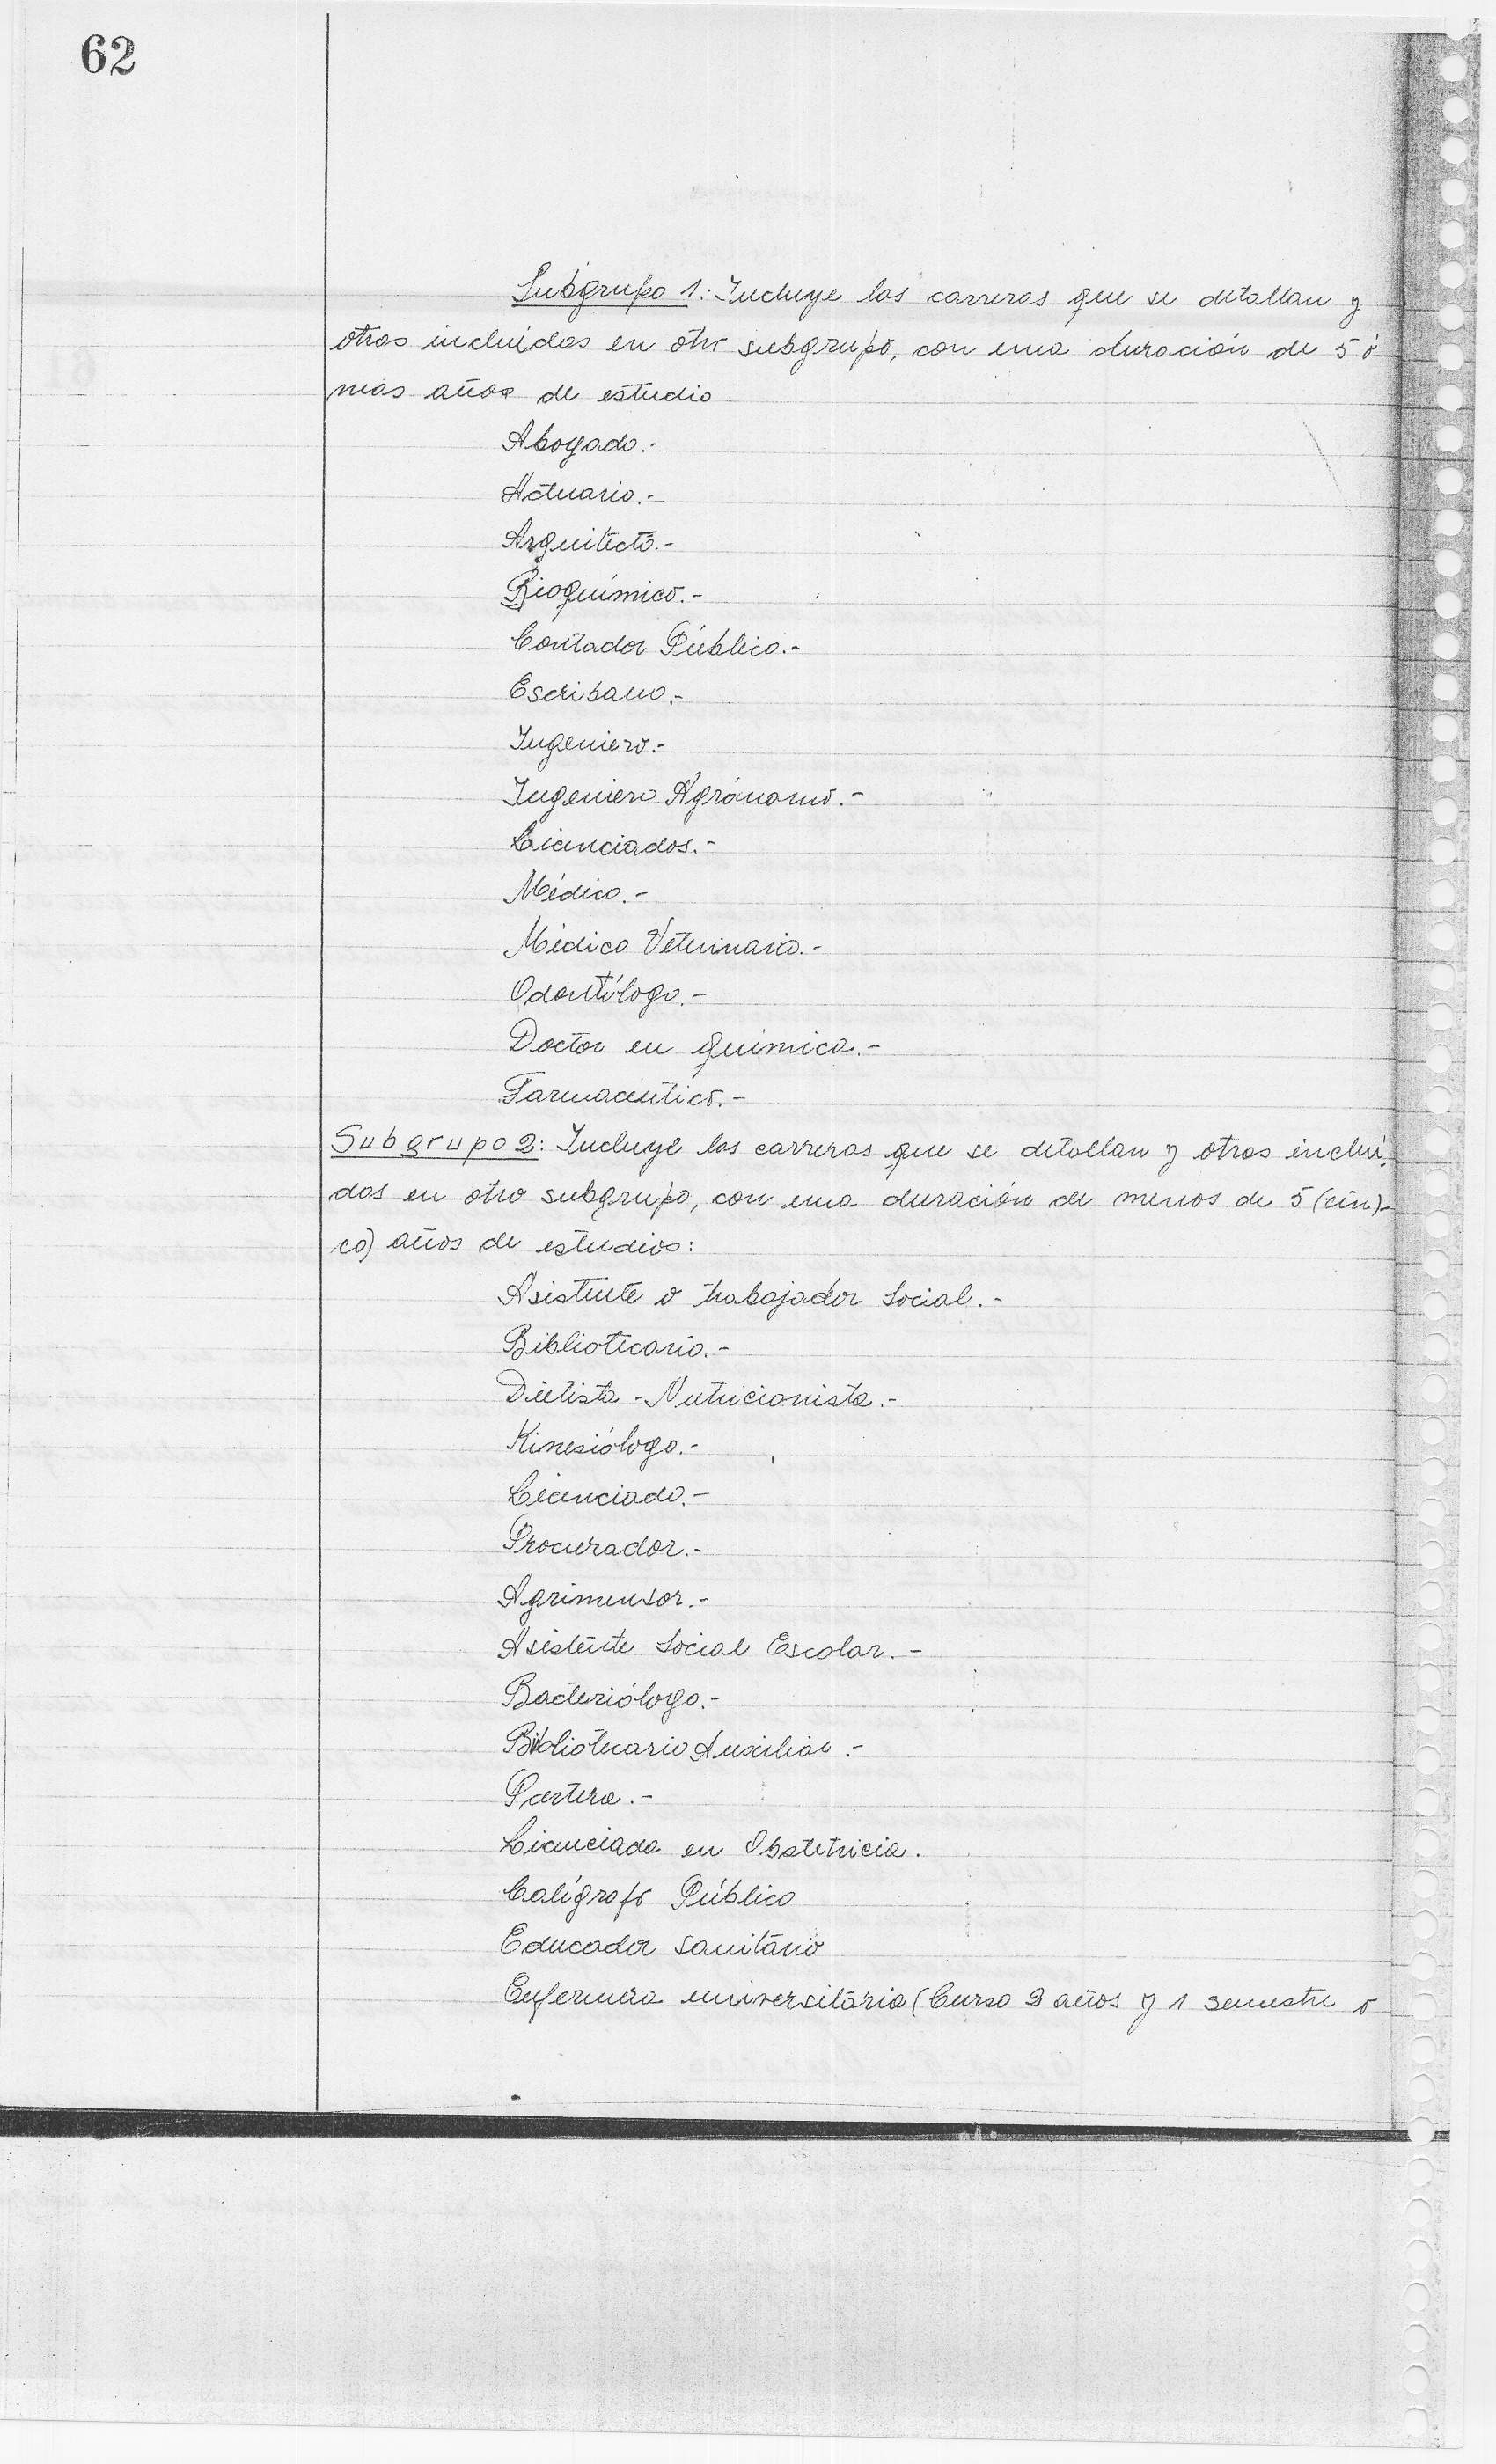 62
Subgrupo 1: Incluye las carreras que se detallan y
otras incluídas en otro subgrupo, con una duración de 5 ó
mas años de estudio
Abogado.-
Actuario.-
Arquitecto.-
Bioquímico.-
Contador Público.-
Escribano.-
Ingeniero.-
Ingeniero Agrónomo.-
Licenciados.-
Médico.-
Médico Veterinario.-
Odontólogo.-
Doctor en química.-
Farmacéutico.-
Subgrupo 2: Incluye las carreras que se detallan y otras incluí-
das en otro subgrupo, con una duración de menos de 5 (cin)-
co) años de estudios:
Asistente o trabajador Social.-
Bibliotecario.-
Dietista - Nutricionista.-
Kinesiólogo.-
Licenciado.-
Procurador.-
Agrimensor.-
Asistente Social Escolar.-
Bacteriólogo.-
Bibliotecario Auxiliar.-
Partera.-
Licenciada en Obstetricia.
Calígrafo Público
Educador sanitario
Enfermera universitaria (Curso 2 años y 1 semestre o